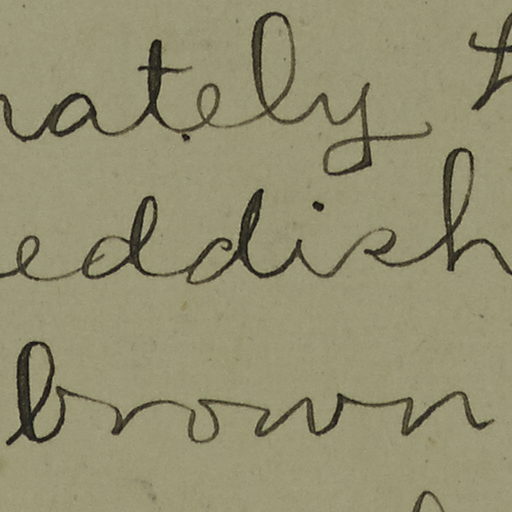 nately
eddish
brown